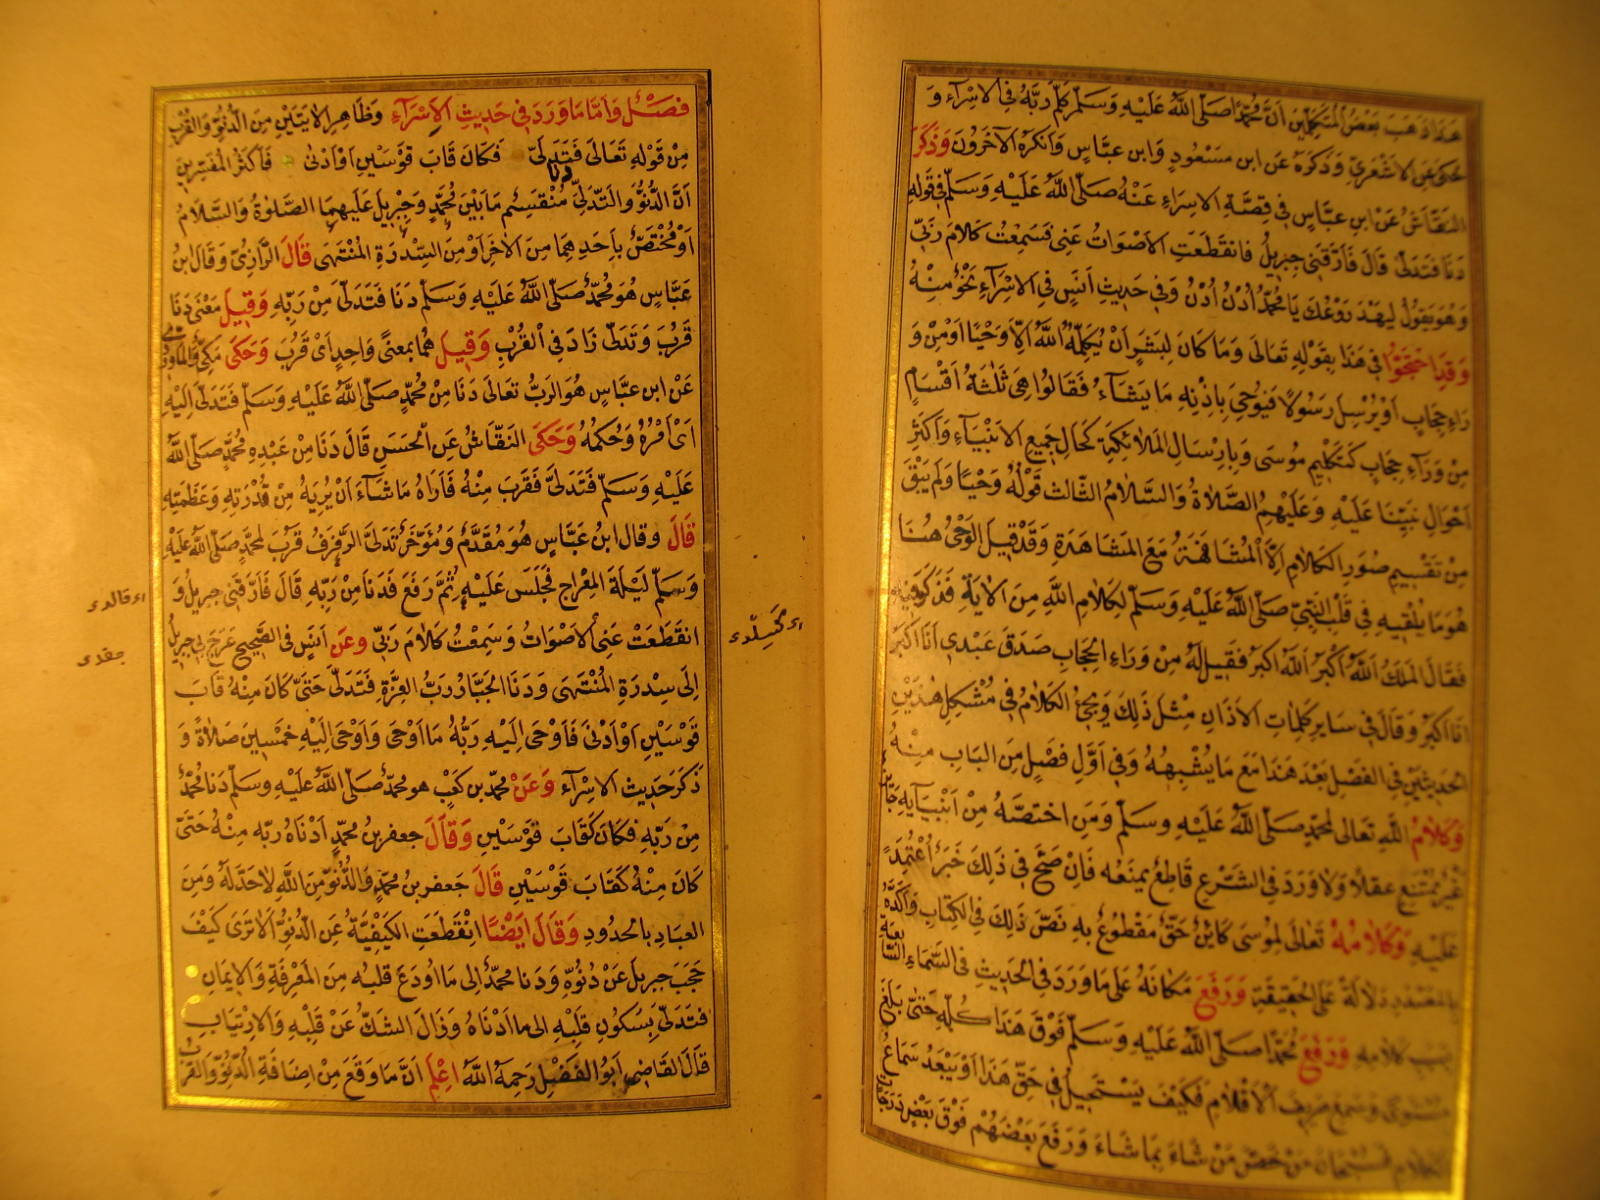 هذا ذهب بعض المتكلمين أنّ محمّدًا صَلّى اللّٰه عَليْهِ وَسَلم كلّم رَبّهُ في الاسْراء وَ
حكى عن الاشعَريّ وَذكرَهُ عَن ابن مسْعُودٍ وَابن عبّاسٍ وَانكرهُ الآخرُونَ وَذَكرَ
النقّاشُ عَن ابن عبّاسٍ في قِصّة الاسراءِ عنهُ صَلّى اللّٰه عَليْهِ وَسلم في قولهِ
دَنا فتدَلّىٰ قالَ فارَقَني جِبريلُ فانقطعَتِ الاصْوَاتُ عَنّي فسَمِعْتُ كلامَ رَبّي
وَهُو يَقولُ ليَهْدَ رَوْعُكَ يا محمّدُ ادْنُ ادْنُ وَفي حَديثِ انَسٍ في الاسْرَاءِ نحْوٌ منْهُ
وَقدِ احْتجّوُا في هَذا بقَوْلهِ تعَالى وَمَا كانَ لبَشرٍ أنْ يُكلّمَهُ اللّٰهُ الّا وَحْيًا أوْ مِنْ وَ
رَاءِ حِجابٍ أوْ يُرْسِلَ رَسُولًا فيُوحيَ باذنِهِ مَا يَشَاءُ فَقالوُا هِيَ ثَلٰثَةُ أقْسَامٍ
مِنْ وَرَآءِ حِجابٍ كتكليمِ مُوسَى وَبارسَالِ المَلائكةِ كحَالِ جَميعِ الانبيَاءِ وَأكثرِ
احْوَالِ نَبيّنا عَليْهِ وَعَليْهِمُ الصّلاةُ وَالسّلامُ الثّالث قَولُهُ وَحْيًا وَلمْ يَبْقَ
مِنْ تقسِيمِ صُوَرِ الكلامِ الّا المُشافهَةُ مَعَ المُشَاهَدَةِ وَقدْ قيلَ الوَحْىُ هُنَا
هُوَ مَا يُلقيهِ في قَلْبِ النّبيِّ صَلّى اللّٰهُ عَليْهِ وَسَلّم لِكلامِ اللّٰهِ مِنَ الآيَةِ فذكرَ فيهِ
فقَالَ المَلَكُ اللّٰهُ أكْبَرُ اللّٰهُ اكبَرُ فقيلَ لهُ مِنْ وَرَاءِ الحِجَابِ صَدَقَ عَبْدي أنَا أكبَرُ
انَا أكبَرُ وَقالَ في سَايرِ كلِمَاتِ الاذَانِ مِثلَ ذلِكَ وَيَجِئُ الكلامُ في مُشْكِلِ هٰذَيْنِ
الحَديثَيْنِ في الفَصْلِ بَعْدَ هَذا مَعَ مَا يُشْبِهُهُ وَفي أوّلِ فَصْلٍ مِنَ البَابِ مِنْهُ
وَكلامُ اللّٰهِ تعَالى لمحمّدٍ صَلّى اللّٰهُ عَليْهِ وَسَلّم وَمَنِ اختصّهُ مِنْ أنبيَايهِ جَائز
غَيْرُ مُمْتَنِعٍ عقلًا وَلا وَرَدَ في الشّرْعِ قاطِعٌ يمنَعُه فَإنْ صَحَّ في ذلِكَ خَبَرٌ اعْتُمِدَ
عَليْهِ وَكلامُهُ تعَالى لمُوسَى كائِنٌ حَقٌّ مَقْطُوعٌ بهِ نَصَّ ذلِكَ في الكِتَابِ وَاكّدَهُ
بالمَصْدَرِ دَلالةً عَلى الحَقيقَةِ وَرَفعَ مَكانَهُ عَلى مَا وَرَدَ في الحَديثِ في السّمَاءِ السّابعَةِ
بسَبَبِ كلامِهِ وَرَفَعَ محمّدًا صَلّى اللّٰهُ عَليْهِ وَسَلّم فَوْقَ هَذَا كلّهِ حَتّىٰ بَلغَ
مُسْتَوًى وَسَمِعَ صَريفَ الأقلامِ فكيْفَ يَسْتَحيلُ في حَقِّ هَذا أوْ يَبْعُدُ سَمَاعُ
الكلامِ فسُبْحَانَ مَنْ خَصَّ مَنْ شَاءَ بمَا شَاءَ وَرَفَعَ بَعْضَهُمْ فَوْقَ بَعْضٍ دَرَجَاتٍ
فصْلٌ وَأمّا مَا وَرَدَ في حَديثِ الإسْرَآءِ وَظَاهِرِ الآيَتَيْنِ مِنَ الدُّنُوِّ وَالقُرْبِ
مِنْ قَوْلهِ تعَالى دنا فَتَدَلّىٰ فكَانَ قابَ قَوْسَيْنِ أوْ أدْنىٰ فَأكثرُ المفسّرينَ
أنَّ الدُّنُوَّ وَالتّدَلّيَ مُنْقسِمٌ مَا بَيْنَ محَمّدٍ وَجِبْريلَ عَليْهِمَا الصّلوٰةُ وَالسّلامُ
أوْ مُخْتَصٌّ بأحَدِهِمَا مِنَ الآخرِ أوْ مِنَ السّدْرَةِ المُنْتَهَى قَالَ الرّازِيُّ وَقالَ ابنُ
عَبّاسٍ هُوَ محمّدٌ صَلّى اللّٰهُ عَليْهِ وَسَلّم دَنَا فَتَدَلّىٰ مِنْ رَبّهِ وَقيلَ مَعْنى دَنَا
قَرُبَ وَتَدَلّىٰ زَادَ في القُرْبِ وَقيلَ هُمَا بمعنىً وَاحِدٍ أىْ قَرُبَ وَحَكىَ مَكّي وَالماوَردي
عَنْ ابن عَبّاسٍ هُوَ الرّبُّ تعَالى دَنَا مِنْ محمّدٍ صَلّى اللّٰهُ عَليْهِ وَسَلّم فَتَدَلّىٰ إليْهِ
أىْ أمْرُهُ وَحُكمُهُ وَحَكىَ النّقّاشُ عَنِ الحسَنِ قَالَ دَنَا مِنْ عَبْدِهِ محمّدٍ صَلّى اللّٰهُ
عَليْهِ وَسَلّم فَتَدَلّىٰ فَقَرُبَ مِنْهُ فَأرَاهُ مَا شَآءَ أنْ يُريَهُ مِنْ قُدْرَتهِ وَعَظَمَتِهِ
قَالَ وقال ابنُ عَبّاسٍ هُوَ مُقَدَّمٌ وَمُؤَخّرٌ تَدَلّىَ الرّفْرَفُ قَرُبَ لمحمّدٍ صَلّى اللّٰهُ عَليْهِ
وَسَلّم لَيْلةَ المِعْراجِ فجَلسَ عَليْهِ ثُمَّ رُفِعَ فَدَنَا مِنْ رَبّهِ قَالَ فَارَقَني جِبريلُ وَ
انقطَعَتْ عَنّي الأصْوَاتُ وَسَمِعْتُ كلامَ رَبّي وعَنْ أنَسٍ في الصّحيحِ عَرَجَ بي جبريلُ
إلى سِدْرَةِ المُنْتَهَى وَدَنَا الجَبّارُ رَبُّ العِزّةِ فَتَدَلّىٰ حَتّىٰ كانَ مِنْهُ قَابَ
قَوْسَيْنِ أوْ أدْنىٰ فَأوْحَىٰ إليْهِ رَبُّهُ مَا أوْحَى وَأوْحَى إليْهِ خَمْسِينَ صَلاةً وَ
ذَكرَ حَديثَ الاسْرَآءِ وَعَنْ محمّد بن كَعْبٍ هو محمّدٌ صَلّى اللّٰهُ عَليْهِ وَسَلّم دَنَا محمّدٌ
مِنْ رَبّهِ فكَانَ كَقَابَ قَوْسَيْنِ وَقَالَ جعفر بنُ محمّدٍ أدْنَاهُ ربّه مِنْهُ حَتّىٰ
كانَ مِنْهُ كَقَابَ قَوْسَيْنِ قَالَ جَعفر بنُ محمّدٍ وَالدُّنُوُّ مِنَ اللّٰهِ لا حَدّلهُ وَمِنَ
العِبَادِ بالحُدُودِ وَقَالَ أيْضًا انْقَطَعَتِ الكيْفِيّةُ عَنِ الدُّنُوِّ ألا تَرَى كيْفَ
حَجَبَ جبريلَ عَنْ دُنُوّهِ وَدَنا محمّدٌ الى مَا أودَعَ قلبَه مِنَ المَعْرفَةِ وَالإيمَانِ
فتَدَلّىٰ بسُكونِ قَلبِهِ الى ما ادْنَاهُ وَزَالَ الشّكُّ عَنْ قَلبِهِ وَالارْتِيَابُ
قَالَ القَاضي أبُو الفَضْلِ رَحِمَهُ اللّٰهُ اعْلَمْ أنَّ مَا وَقَعَ مِنْ اضَافَةِ الدُّنُوِّ وَالقُرْبِ